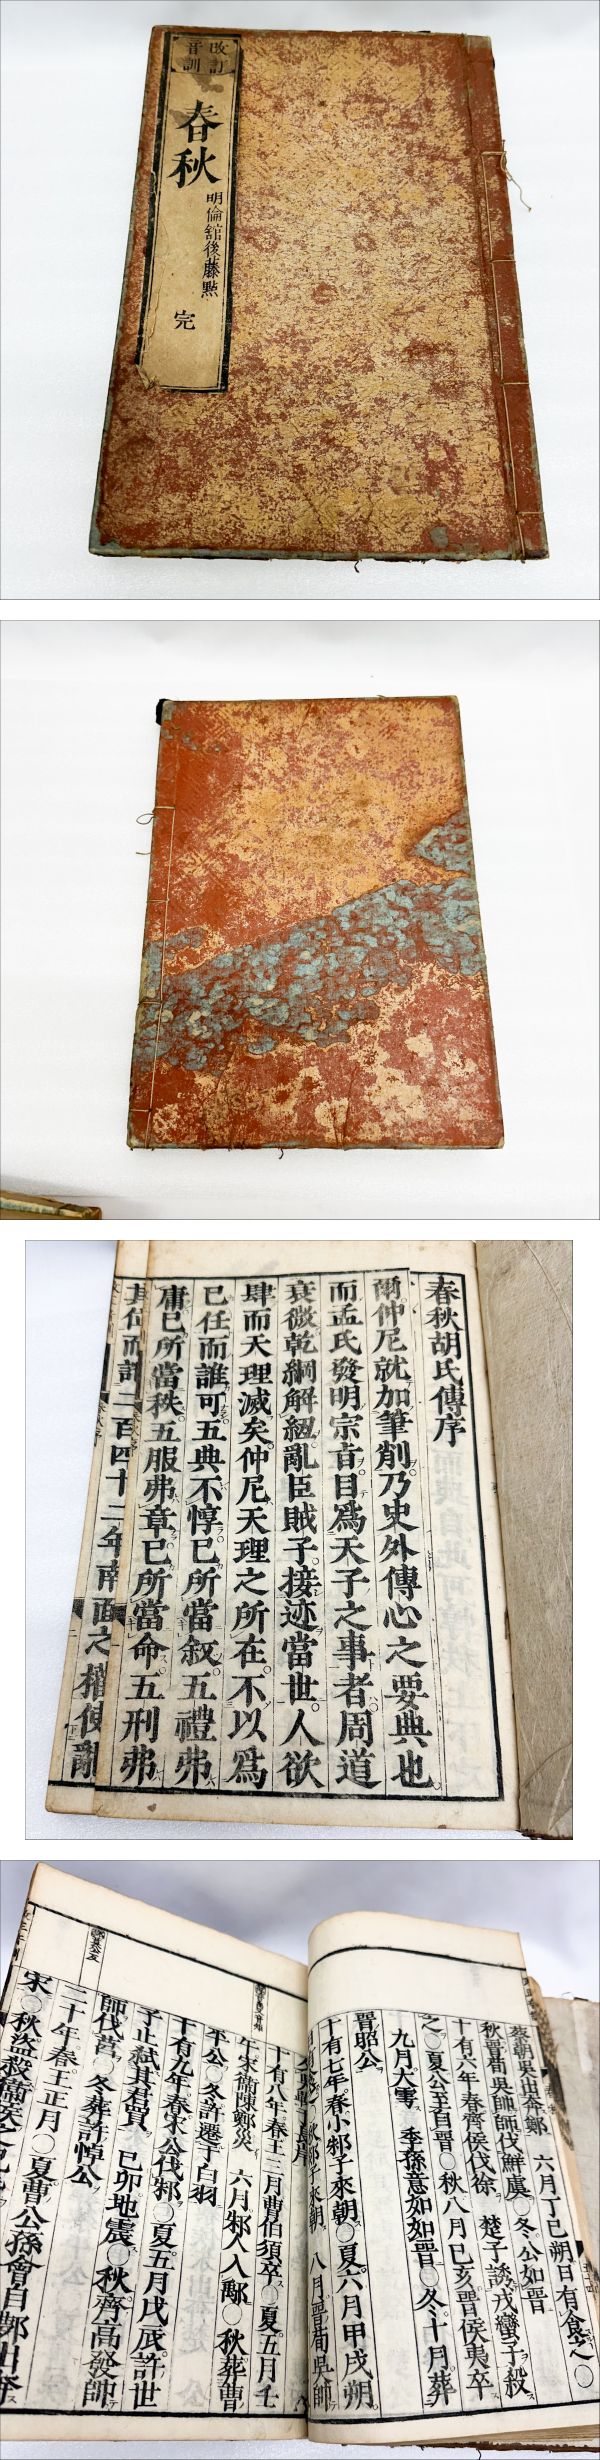 改訂
音訓
春秋
明倫館後藤點
完
春秋胡氏傳序
爾仲尼就加筆削乃史外傳心之要典也
而孟氏發明宗旨目爲天子之事者周道
衰微乾綱解紐亂臣賊子接迹當世人欲
肆而天理滅矣仲尼天理之所在不以爲
己任而誰可五典不惇己所當叙五禮弗
庸己所當秩五服弗章己所當命五刑弗
二百四十二年南面之權使亂
蔡朝吳出奔鄭 六月丁巳朔日有食之○
秋晉荀吳帥師伐鮮虞○冬公如晉
十有六年春齊侯伐徐 楚子誘戎蠻子殺
之○夏公至自晉○秋八月己亥晉侯夷卒
九月大雩 季孫意如如晉○冬十月葬
晉昭公
十有七年春小邾子來朝○夏六月甲戌朔
秋郯子來朝 八月晉荀吳帥
十有八年春王三月曹伯須卒○夏五月壬
午宋衛陳鄭災 六月邾人入鄅○秋葬曹
平公○冬許遷于白羽
十有九年春宋公伐邾○夏五月戊辰許世
子止弑其君買 己卯地震○秋齊高發帥
師伐莒○冬葬許悼公
二十年春王正月○夏曹公孫會自鄸出奔
宋○秋盜殺衛侯之兄